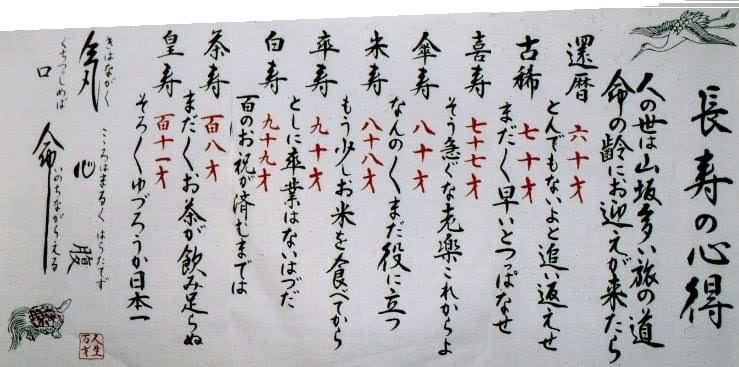 長寿の心得
人の世は山坂多い旅の道
命の齢にお迎えが来たら
還暦 六十才
とんでもないよと追い返えせ
古稀 七十才
まだ〱早いとつっぱなせ
喜寿 七十七才
そう急ぐな老楽これからよ
傘寿 八十才
なんの〱まだ役に立つ
米寿 八十八才
もう少しお米を食べてから
卒寿 九十才
としに卒業はないはづだ
白寿 九十九才
百のお祝が済むまでは
茶寿 百八才
まだ〱お茶が飲み足らぬ
皇寿 百十一才
そろ〱ゆづろうか日本一
きはながく こころはまるく はらたてず
気 心 腹
くちつつしめば いのちながらえる
口 命
人生万才